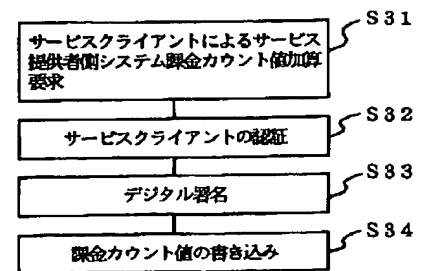 サービスクライアントによるサービス
提供者側システム課金カウント値加算
要求
S31
サービスクライアントの認証
S32
デジタル署名
S33
課金カウント値の書き込み
S34